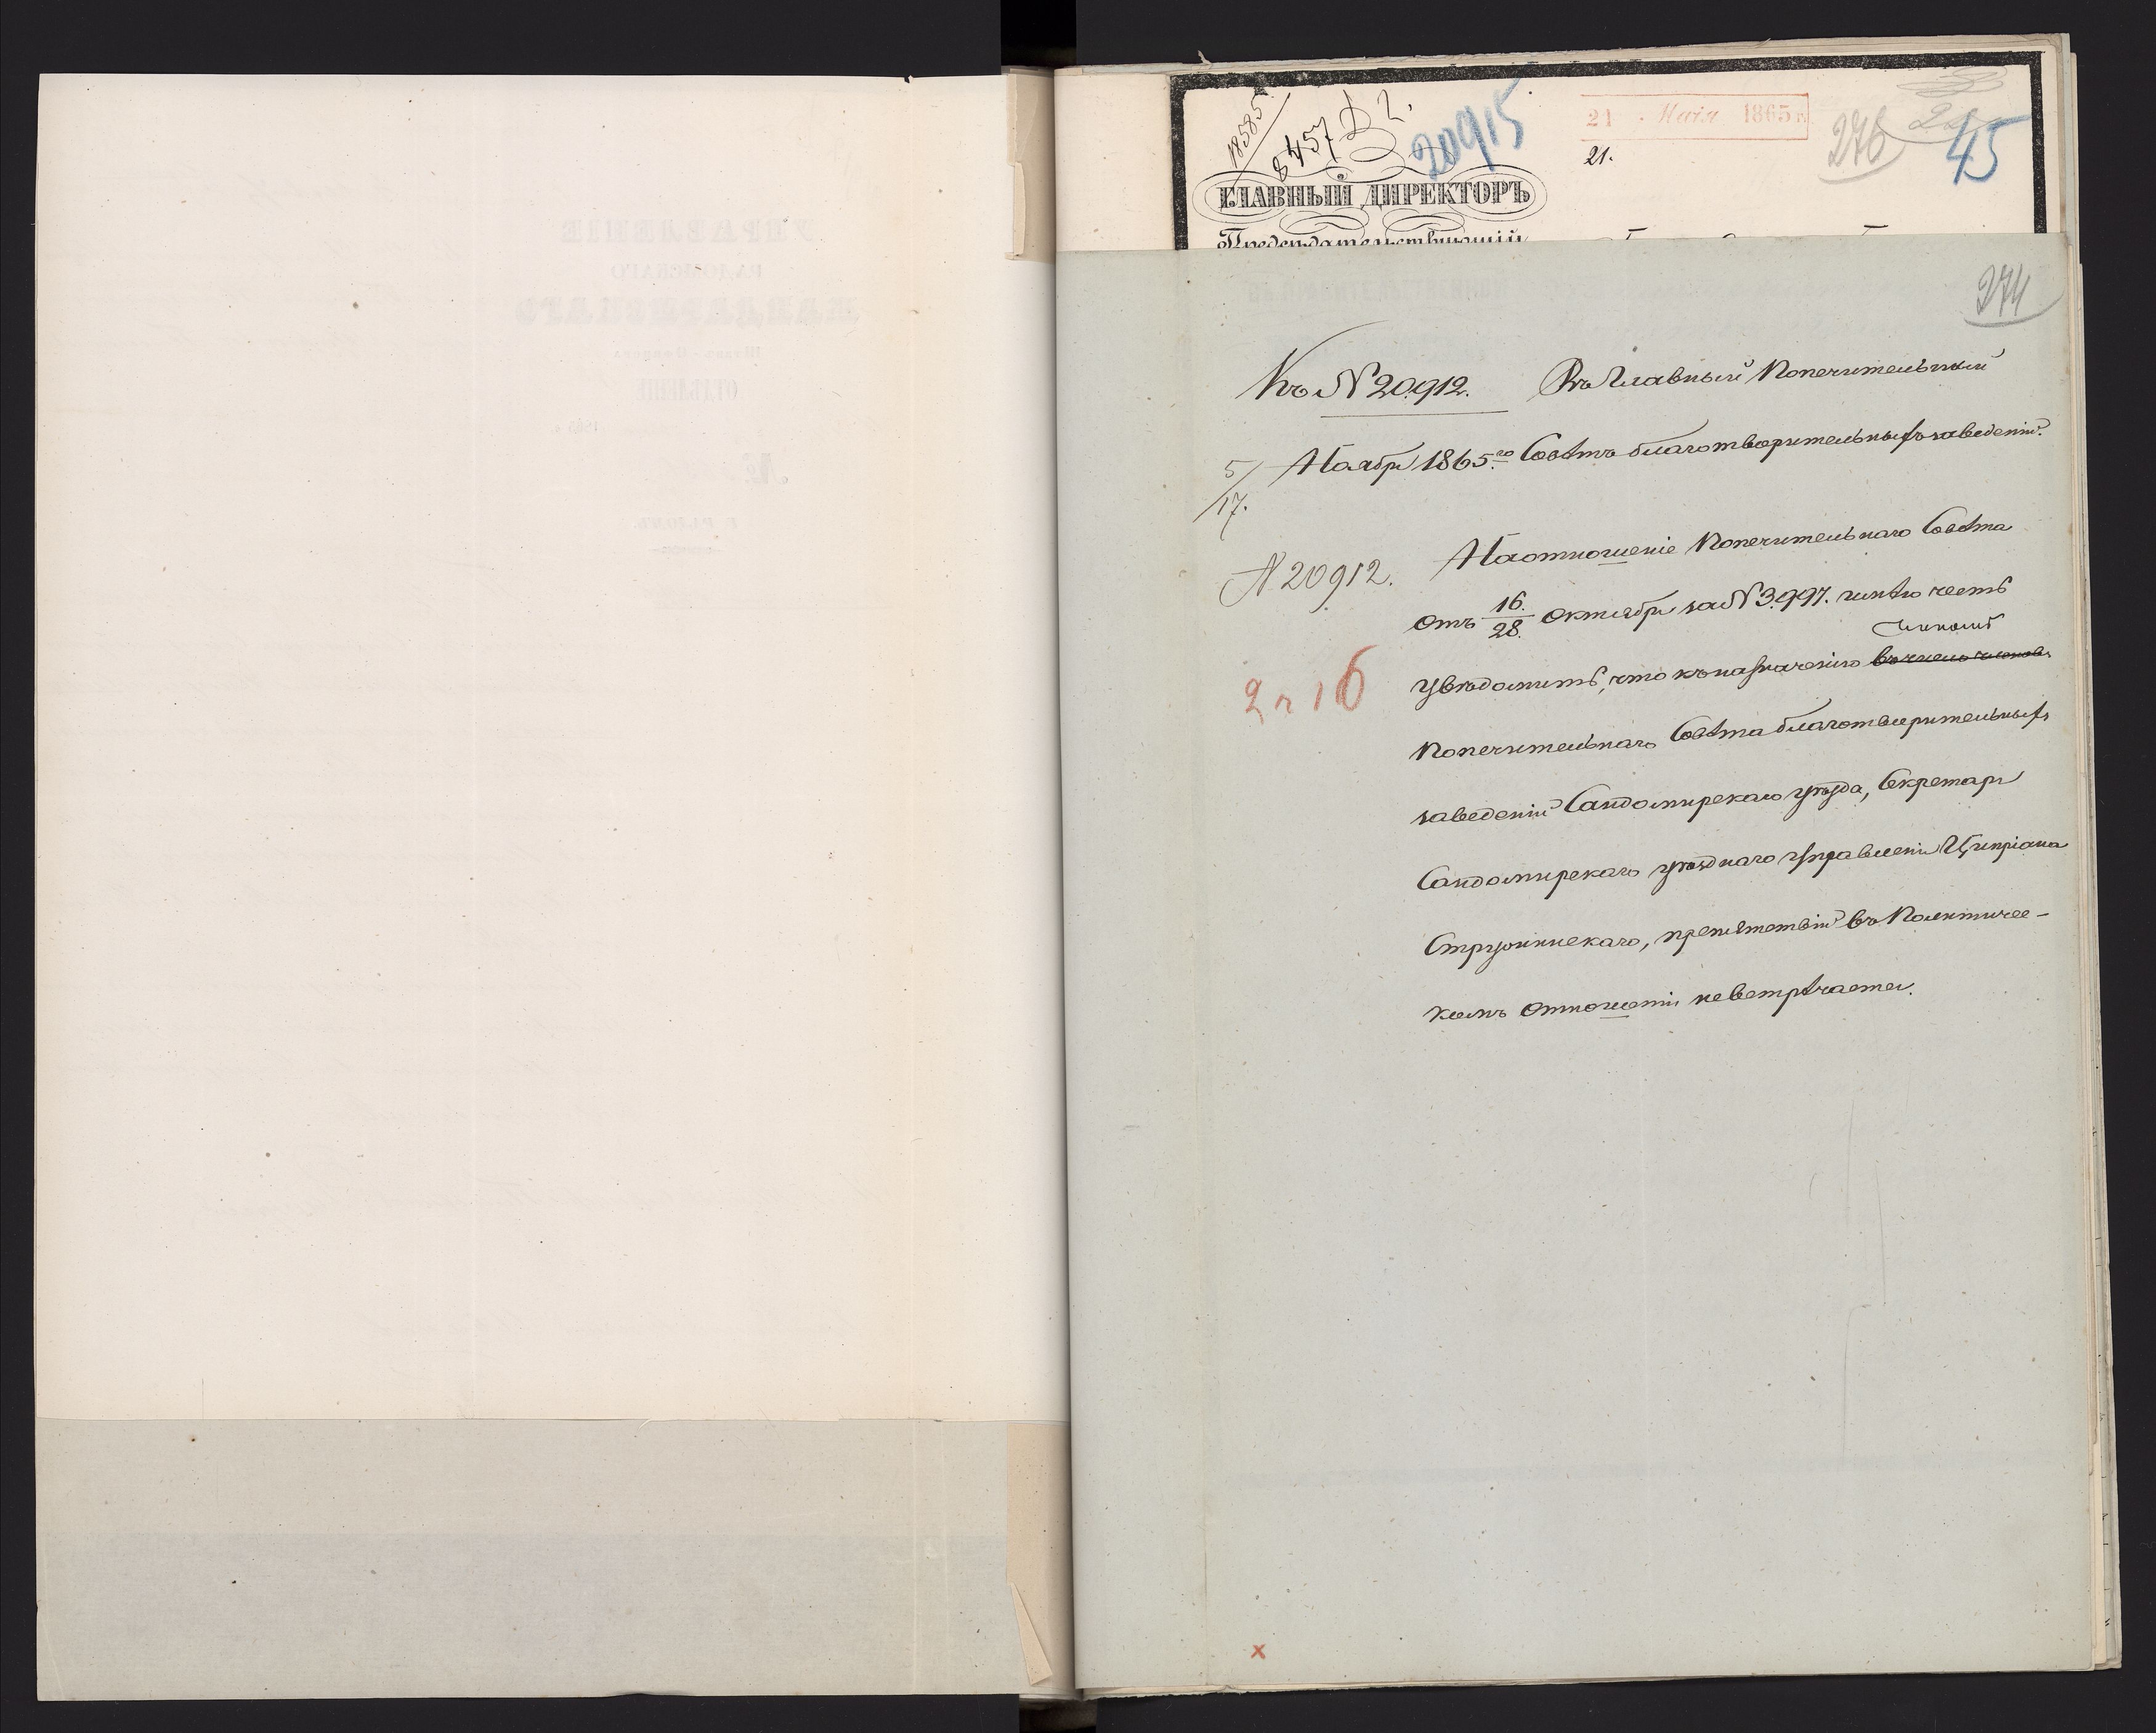 18585
8457
20915
21 Мaiя 1865 г.
21.
276
45
ГЛАВНЫЙ ДИРЕКТОРЪ
Предсѣдательствующій
274
Къ N 20912.
Въ Главный Попечительный
5/17. Ноября 1865.го Совѣтъ благотворительныхъ заведеній.
N 20912.
На отношеніе Попечительнаго Совѣта
отъ 16./28. Октября за N 3997. имѣю честь
членомъ
увѣдомить, что къ назначенію въ число членовъ
Попечительнаго Совѣта благотворительныхъ
заведеній Сандомирскаго уѣзда, Секретаря
Сандомирскаго уѣзднаго Управленія Ципріана
Струпинскаго, препятствій въ Политичес-
комъ отношеніи не встрѣчается.
УПРАВЛЕНІЕ
РАДОМСКАГО
ЖАНДАРМСКАГО
Штабъ-Офицера
ОТДѢЛЕНІЕ
1865 г.
№
Г. РАДОМЪ.